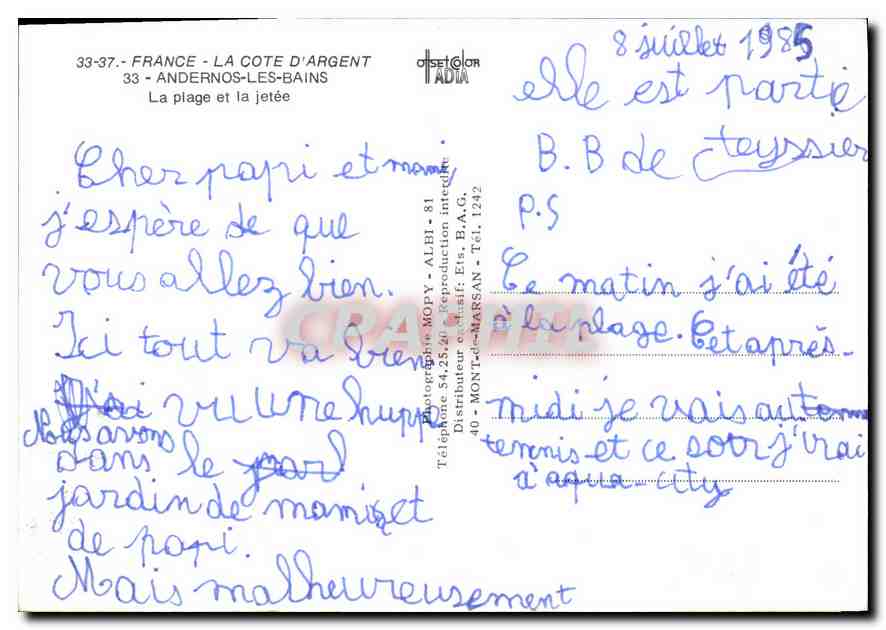 33-37.- FRANCE - LA COTE D'ARGENT
33 - ANDERNOS-LES-BAINS
La plage et la jetée
OFFSETCOLOR
IADTA
Cher papi et mami,
j'espère de que
vous allez bien.
Ici tout va bien
J'ai vu une huppe
Nous avons
dans le parl
jardin de mami et
de papi.
Mais malheureusement
Photographie MOPY - ALBI - 81
Téléphone 54.25.20 - Reproduction interdite
Distributeur exclusif: Ets. B.A.G.
40 - MONT-de-MARSAN - Tél. 1242
8 juillet 1985
elle est partie
B.B de teyssier
P.S
Ce matin j'ai été
à la plage. Cet après-
midi je vais au
tennis et ce soir j'irai
à aqua-city
CPArama